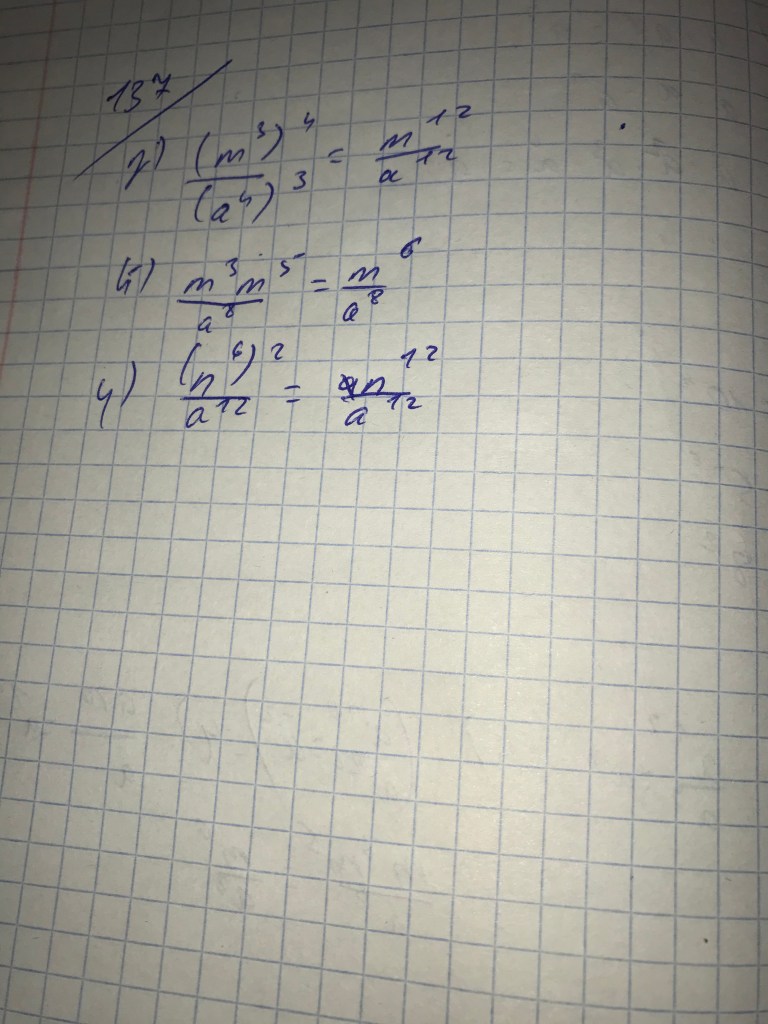 137
г) (m³)⁴/(a⁴)³ = m¹²/a¹²
й) m³m⁵/a⁸ = m⁶/a⁸
ч) (n⁶)²/a¹² = n¹²/a¹²